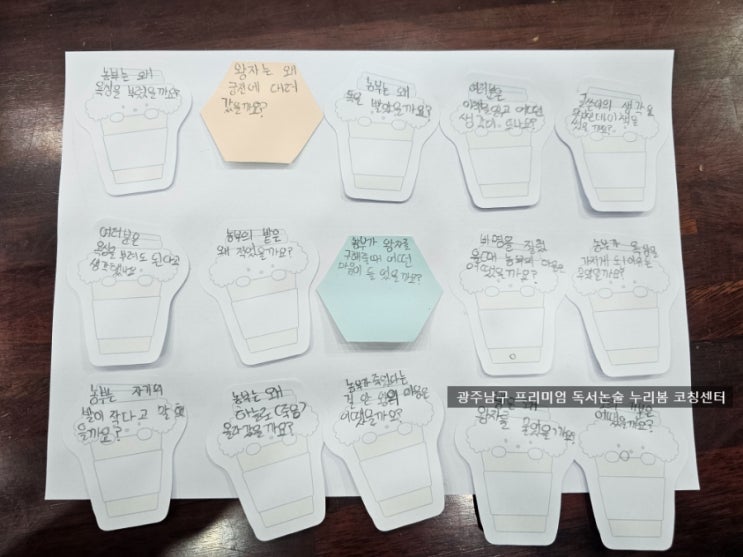 농부는 왜
욕심을 부렸을까요?
왕자는 왜
궁전에 데려
갔을까요?
농부는 왜
땅을 받았을까요?
여러분은
이책을 읽고 어떤
생각이 드나요?
생각을
여러분은
욕심을 부려도 된다고
생각했나요
농부의 밭은
왜 작았을까요?
농부가 왕자를
구해줄때 어떤
마음이 들었을까요?
비명을 질렀
을때 농부의 마음은
어땠을까요?
농부가 욕심을
가지게 된 이유는
무엇일까요?
농부는 자기의
밭이 작다고 말했
을까요?
농부는 왜
하늘로 (죽음)
올라갔을까요?
농부가 죽었다는
걸 안 왕의 마음은
어땠을까요?
왜
왕자를 구했을까요?
기분은
어땠을까요?
광주남구 프리미엄 독서논술 누리봄 코칭센터